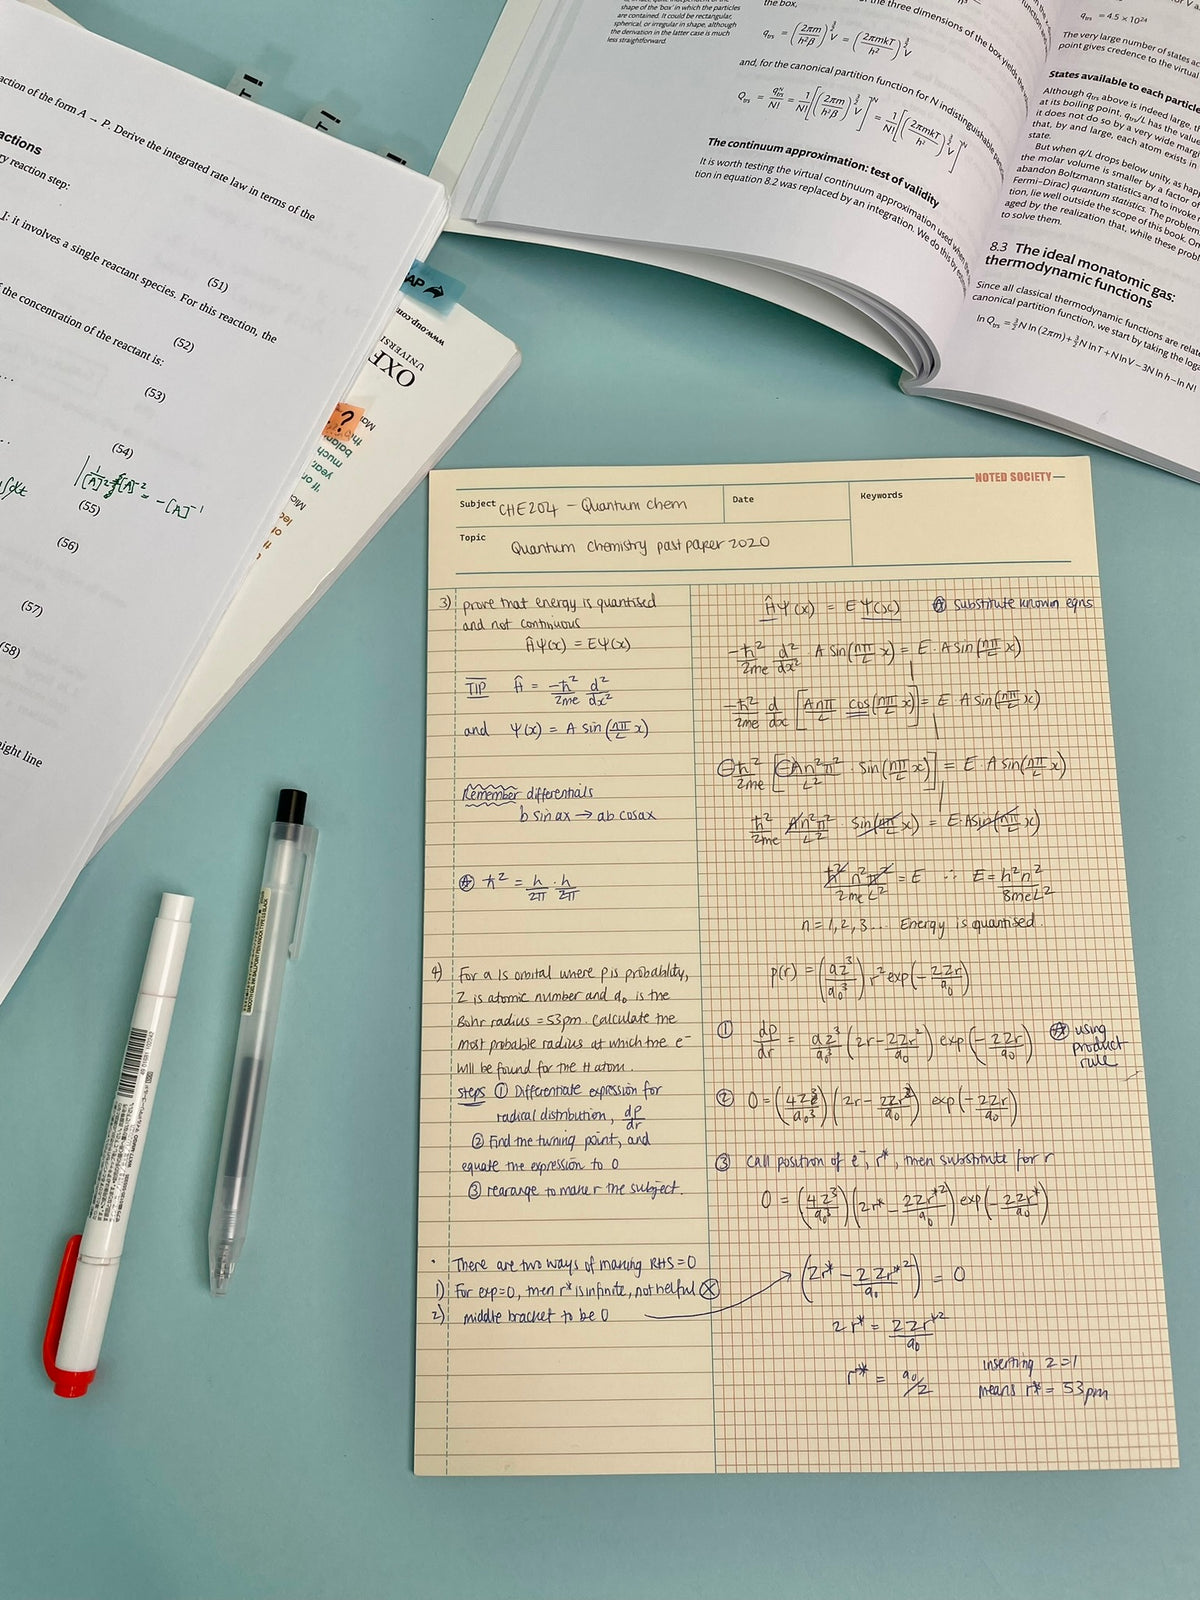 action of the form A → P. Derive the integrated rate law in terms of the
actions
ry reaction step:
]: it involves a single reactant species. For this reaction, the
(51)
f the concentration of the reactant is:
(52)
(53)
(54)
∫dt
(55)
(56)
(57)
(58)
ight line
T!
T!
AP
www.oup.com
OXF
UNIVERSI
?
balan
much
year,
'If or
shape of the 'box' in which the particles
are contained. It could be rectangular,
spherical, or irregular in shape, although
the derivation in the latter case is much
less straightforward.
the box,
of the three dimensions of the box yields the
q_trs = (2πm/h²β)^(3/2) V = (2πmkT/h²)^(3/2) V
and, for the canonical partition function for N indistinguishable
Q_trs = q_trs^N/N! = 1/N! [(2πm/h²β)^(3/2) V]^N = 1/N! [(2πmkT/h²)^(3/2) V]^N
The continuum approximation: test of validity
It is worth testing the virtual continuum approximation used when
tion in equation 8.2 was replaced by an integration. We do this by
q_trs = 4.5 × 10²⁴
The very large number of states
point gives credence to the virtual
States available to each particle
Although q_trs above is indeed large,
at its boiling point, q_trs/L has the value
it does not do so by a very wide
that, by and large, each atom exists in
state.
But when q/L drops below unity, as
the molar volume is smaller by a factor
abandon Boltzmann statistics and to invoke
Fermi–Dirac) quantum statistics. The problem
tion, lie well outside the scope of this book.
aged by the realization that, while these
to solve them.
8.3 The ideal monatomic gas:
thermodynamic functions
Since all classical thermodynamic functions are
canonical partition function, we start by taking the
ln Q_trs = 3/2 N ln (2πm) + 3/2 N ln T + N ln V − 3N ln h − ln N!
NOTED SOCIETY
Subject CHE204 - Quantum chem
Date
Keywords
Topic
Quantum chemistry past paper 2020
3) prove that energy is quantised
and not continuous
Ĥψ(x) = Eψ(x)
TIP Ĥ = -ħ²/2me d²/dx²
and ψ(x) = A sin(nπ/L x)
Remember differentials
b sin ax → ab cosax
ħ² = h/2π · h/2π
Ĥψ(x) = Eψ(x) substitute known eqns
-ħ²/2me d²/dx² A sin(nπ/L x) = E · A sin(nπ/L x)
-ħ²/2me d/dx [Anπ/L cos(nπ/L x)] = E · A sin(nπ/L x)
-ħ²/2me [-An²π²/L² · sin(nπ/L x)] = E · A sin(nπ/L x)
ħ²/2me An²π²/L² · sin(nπ/L x) = E · A sin(nπ/L x)
ħ²n²π²/2meL² = E ∴ E = h²n²/8meL²
n = 1, 2, 3... Energy is quantised.
4) For a 1s orbital where p is probability,
Z is atomic number and a₀ is the
Bohr radius = 53pm. Calculate the
most probable radius at which the e⁻
will be found for the H atom.
steps ① Differentiate expression for
radical distribution, dp/dr
② Find the turning point, and
equate the expression to 0
③ rearange to make r the subject.
· There are two ways of making RHS = 0
1) For exp=0, then r* is infinite, not helful ⊗
2) middle bracket to be 0
p(r) = (az³/a₀³) r² exp(-2Zr/a₀)
① dp/dr = az³/a₀³ (2r - 2Zr²/a₀) exp(-2Zr/a₀) using
product
rule
② 0 = (4Z³/a₀³)(2r - 2Zr²/a₀) exp(-2Zr/a₀)
③ call position of e⁻, r*, then substitute for r
0 = (4Z³/a₀³)(2r* - 2Zr*²/a₀) exp(-2Zr*/a₀)
(2r* - 2Zr*²/a₀) = 0
2r* = 2Zr*²/a₀
r* = a₀/Z
inserting Z=1
means r* = 53pm